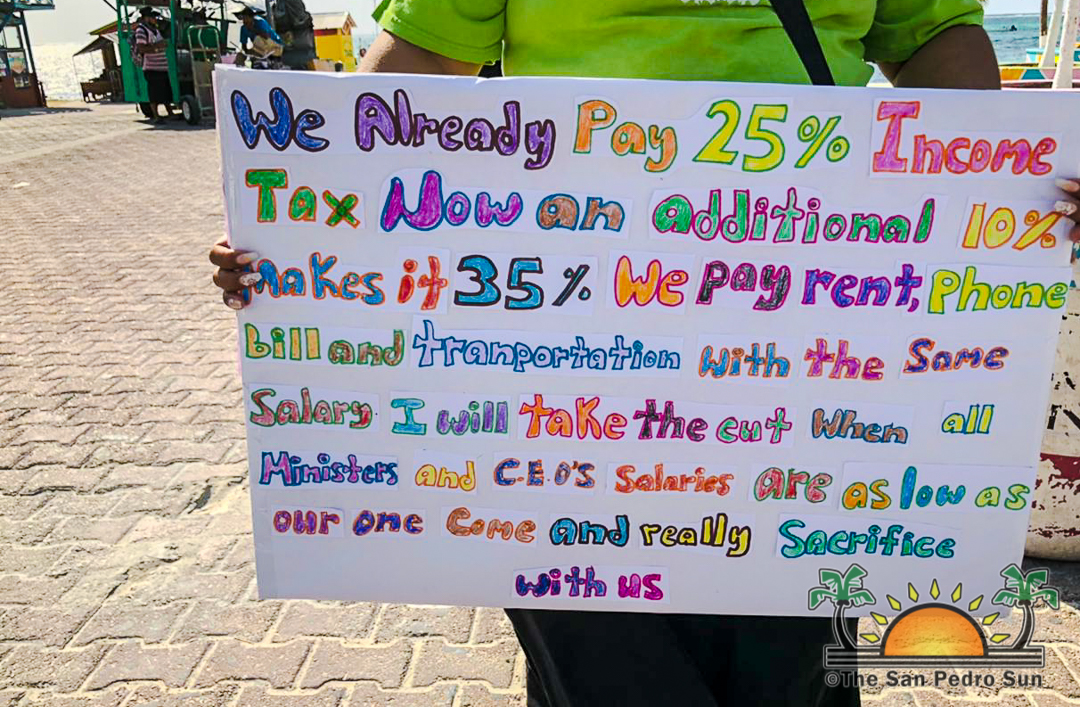 We Already Pay 25% Income
Tax Now an additional 10%
Makes it 35% We pay rent, Phone
bill and tranportation with the Same
Salary I will take the cut When all
Ministers and C.E.O'S Salaries are as low as
our one Come and really Sacrifice
with us
©The San Pedro Sun